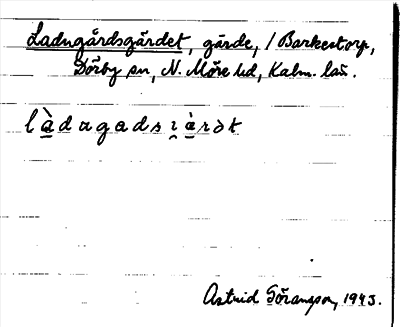 Ladugårdsgärdet, gärde, i Barkestorp,
Dörby sn, N. Möre hd, Kalm. län.
Astrid Göransson, 1943.